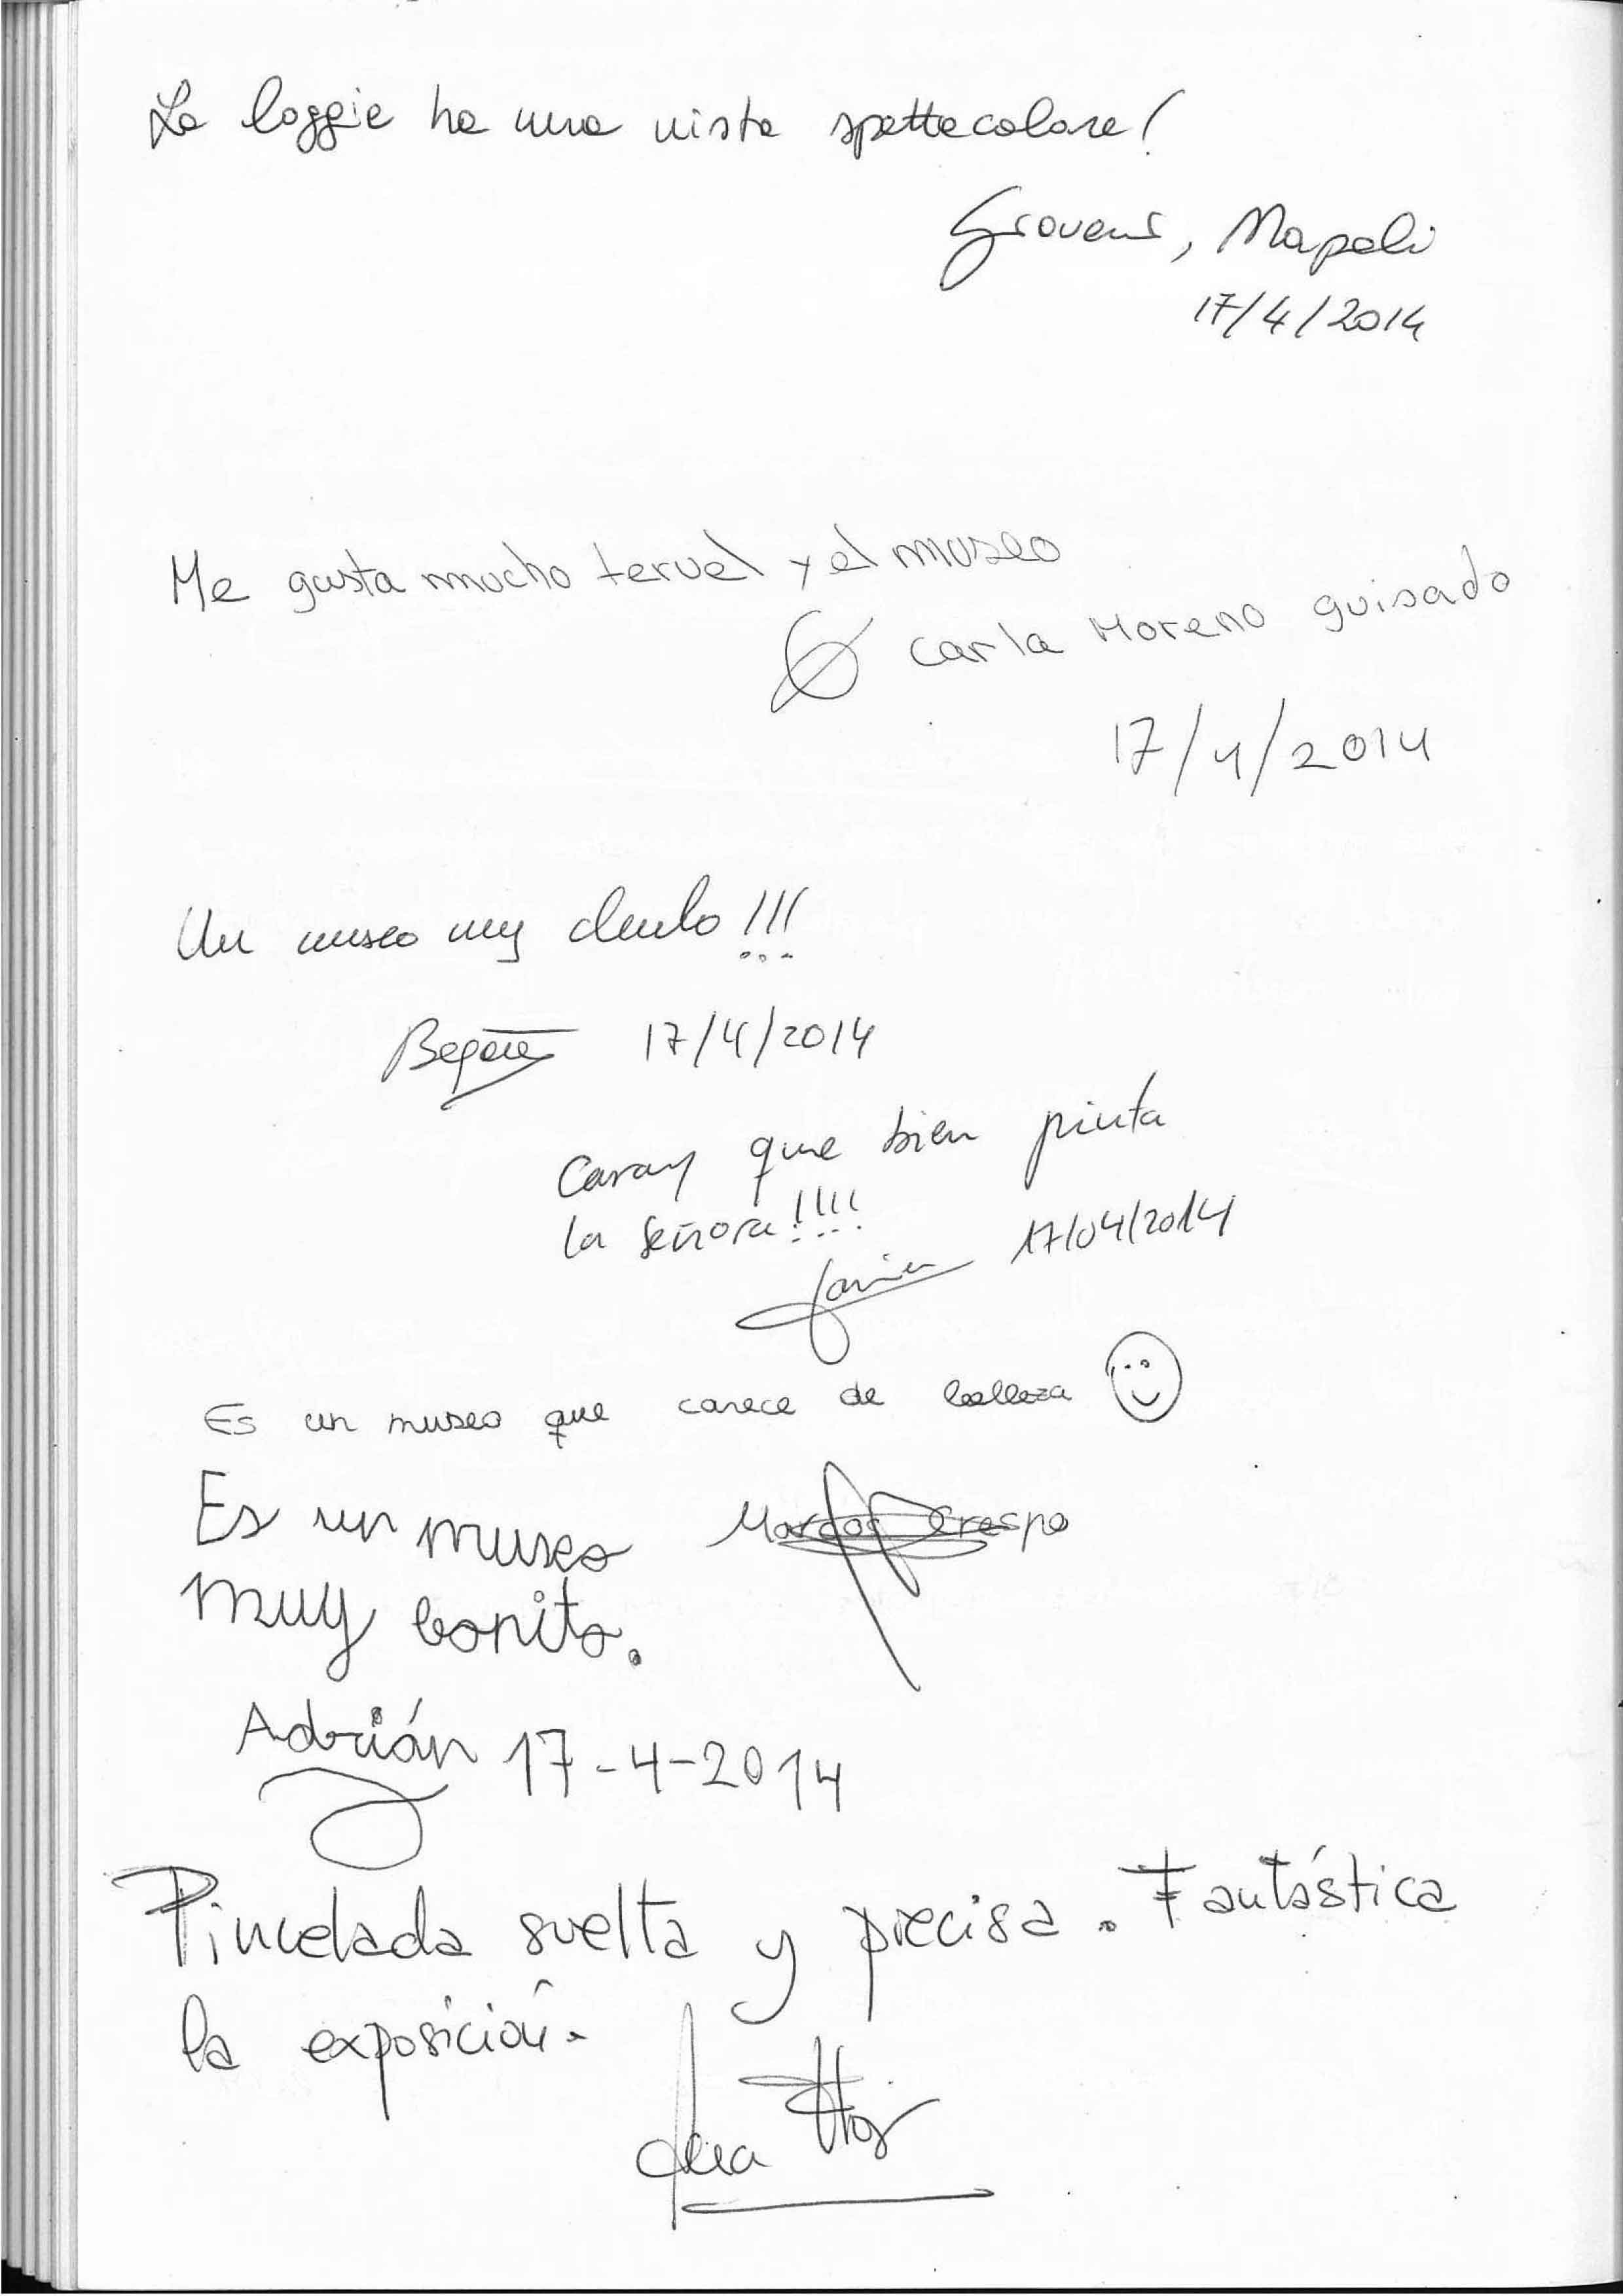 La loggia ha una vista spettacolare!
Giovanni, Napoli
17/4/2014
Me gusta mucho teruel y el museo
Carla Moreno guisado
17/4/2014
Un museo muy chulo!!!
17/4/2014
Caray que bien pinta
la señora!!!!
Javier 17/04/2014
Es un museo que carece de belleza
Es un museo
Marcos Crespo
muy bonito.
Adrián 17-4-2014
Pincelada suelta y precisa. Fantástica
la exposición.
Ana